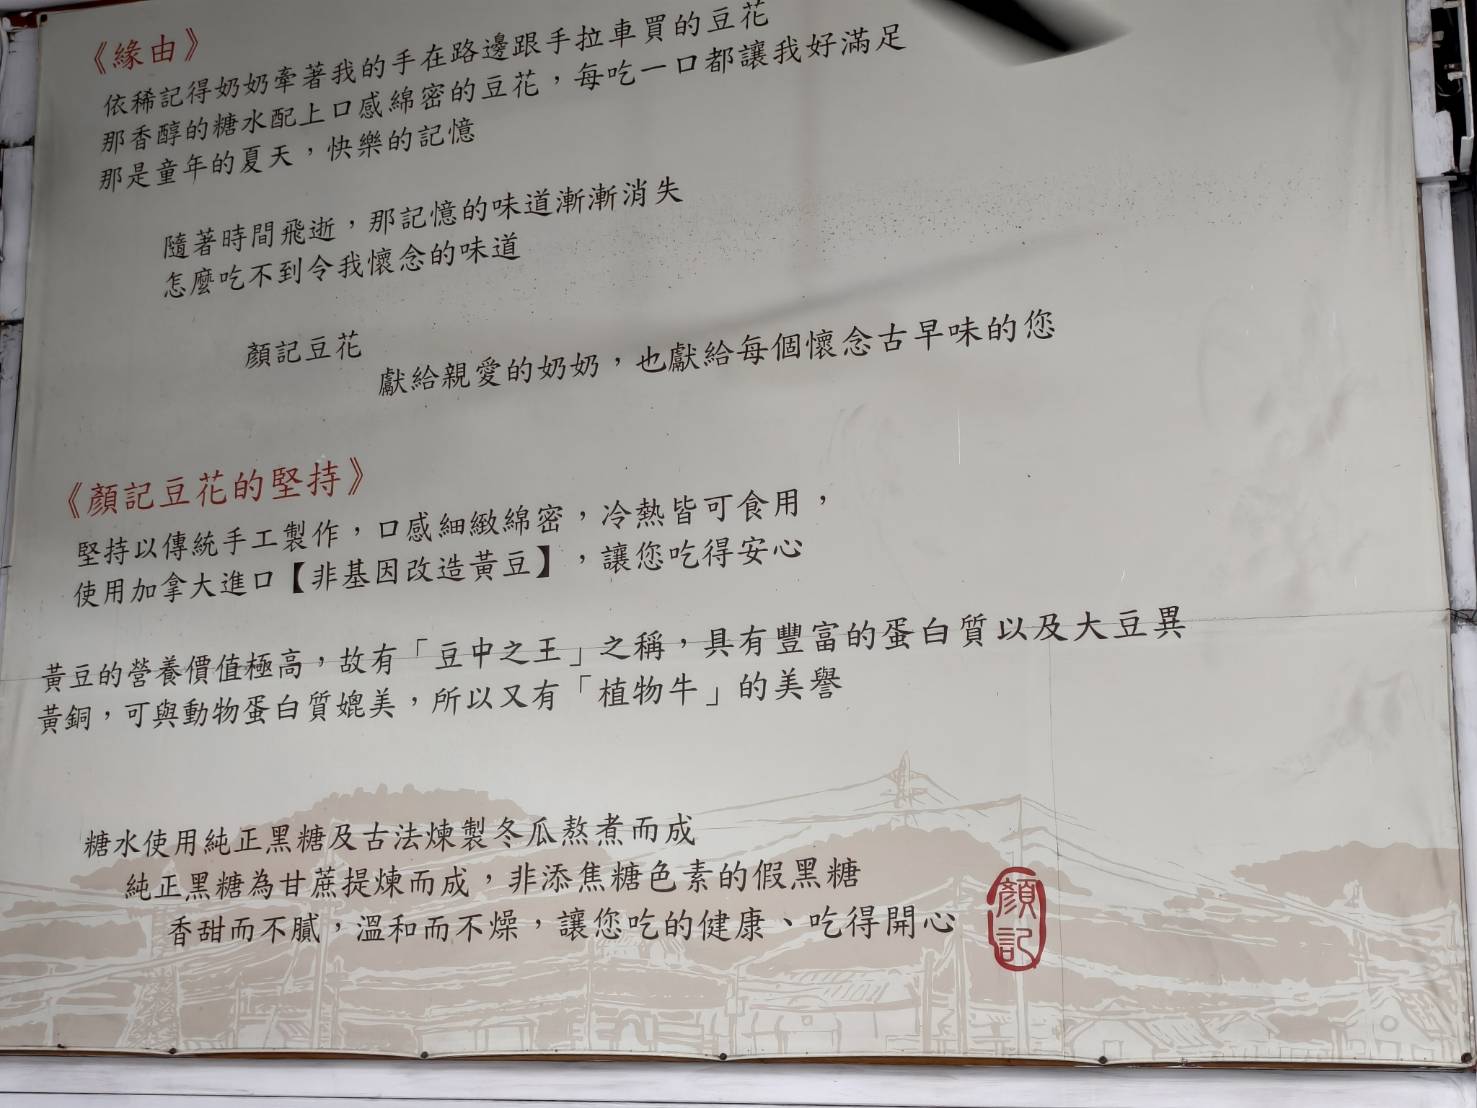 《緣由》
依稀記得奶奶牽著我的手在路邊跟手拉車買的豆花
那香醇的糖水配上口感綿密的豆花，每吃一口都讓我好滿足
那是童年的夏天，快樂的記憶
隨著時間飛逝，那記憶的味道漸漸消失
怎麼吃不到令我懷念的味道
顏記豆花
獻給親愛的奶奶，也獻給每個懷念古早味的您
《顏記豆花的堅持》
堅持以傳統手工製作，口感細緻綿密，冷熱皆可食用，
使用加拿大進口【非基因改造黃豆】，讓您吃得安心
黃豆的營養價值極高，故有「豆中之王」之稱，具有豐富的蛋白質以及大豆異
黃銅，可與動物蛋白質媲美，所以又有「植物牛」的美譽
糖水使用純正黑糖及古法煉製冬瓜熬煮而成
純正黑糖為甘蔗提煉而成，非添焦糖色素的假黑糖
香甜而不膩，溫和而不燥，讓您吃的健康、吃得開心
顏記